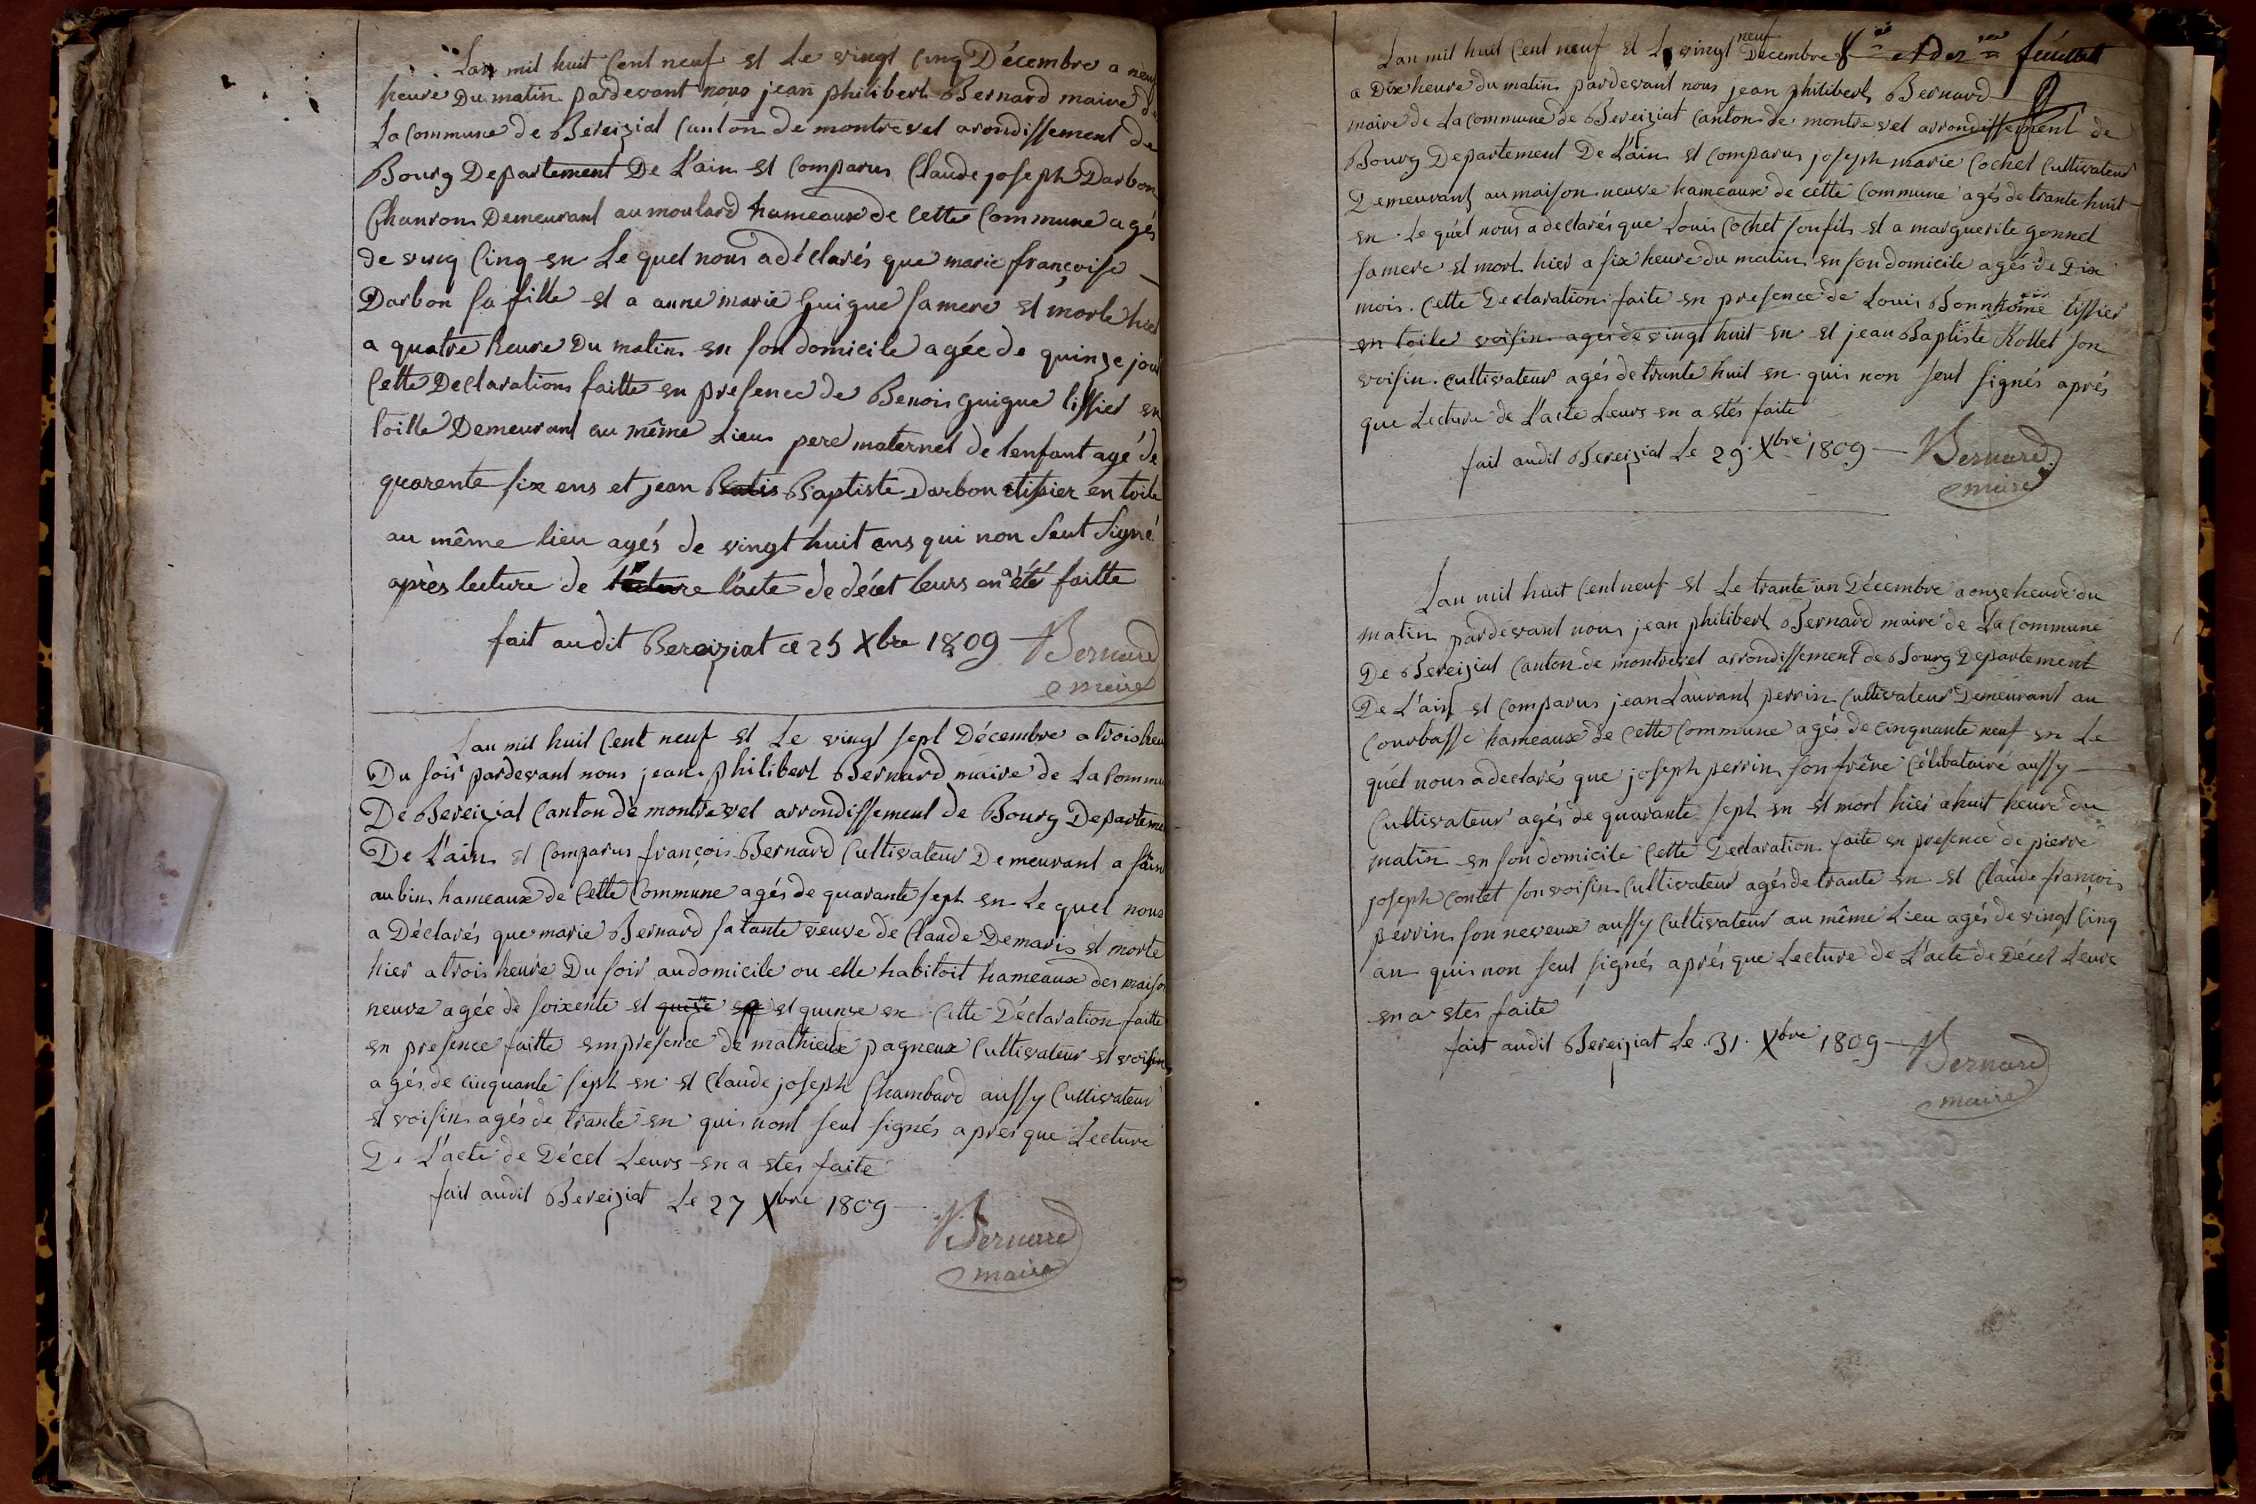 Lan mil huit Cent neuf et Le vingt Cinq Décembre a neuf
heure Du matin pardevant nous jean philibert Bernard maire de
La Commune de Bereiziat Canton de montrevel arondissement de
Bourg Departement De L'ain et Comparus Claude joseph Darbon
Chanron Demeurant au moulard hameaux de Cette Commune agés
de vingt Cinq en Le quel nous a déclarés que marie françoise
Darbon sa fille et a anne marie Guigue sa mere et morte hier
a quatre heure Du matin en son domicile agée de quinze jour
Cette Declarations faitte en presence de Benois guigue tissier en
toille Demeurant au même Lieu pere maternel de lenfant agé de
quarente six ens et jean Batis Baptiste Darbon tissier en toile
au même lieu agés de vingt huit ans qui non Seut Signé
après lecture de lecture l'acte de décet leurs en a été faitte
fait audit Bereiziat ce 25 Xbre 1809 Bernard
maire
Lan mil huit Cent neuf et Le vingt sept Décembre a trois heu
Du soir pardevant nous jean philibert Bernard maire de La Commu
De Bereiziat Canton de montrevel arrondissement de Bourg Departeme
De L'ain et Comparus françois Bernard Cultivateur Demeurant a sain
aubin hameaux de Cette Commune agés de quarante sept en Le quel nous
a Déclarés que marie Bernard sa tante veuve de Claude Demaris et morte
hier a trois heure Du soir au domicile ou elle habitoit hameaux des maiso
neuve agée de soixente et quise et quinze en Cette Déclaration faitte
en presence faitte empresence de mathieux pagneux Cultivateur et voisin
agés de cinquante sept en et Claude joseph Chambard aussy Cultivateur
et voisin agés de trante en quis nont seut signés apres que Lecture
De L'acte de Décet Leurs en a stes faite
fait audit Bereiziat Le 27 Xbre 1809
Bernard
maire
8me et der nier feuillet
Lan mil huit Cent neuf et Le vingt neuf Décembre
a Dix heure du matin pardevant nous jean philibert Bernard
maire de La Commune de Bereiziat Canton de montrevel arrondissement de
Bourg Departement De L'ain et Comparus joseph marie Cochet Cultivateur
Demeurant au maison neuve hameaux de cette Commune agés de trante huit
en Le quel nous a declarés que Louis Cochet son fils et a marguerite gonnet
sa mere et mort hier a six heure du matin en son domicile agés de Dix
mois. Cette Declaration faite en presence de Louis Bonnhome tissier
en toile voisin agés de vingt huit en et jean Baptiste Rollet son
voisin cultivateur agés de trante huit en quis non seut signés aprés
que Lecture de L'acte Leurs en a stés faite
fait audit Bereiziat Le 29 Xbre 1809 Bernard
maire
Lan mil huit Cent neuf et Le trante un Décembre a onze heure du
matin pardevant nous jean philibert Bernard maire de La Commune
De Bereiziat Canton de montrevel arrondissement de Bourg Departement
De L'ain et Comparus jean Laurant perrin Cultivateur Demeurant au
Courbasse hameaux de Cette Commune agés de cinquante neuf en Le
quel nous a declarés que joseph perrin son frère Célibataire aussy
Cultivateur agés de quarante sept en et mort hier a huit heure du
matin en son domicile Cette Declaration faite en presence de pierre
joseph Contet son voisin Cultivateur agés de trante en et Claude françois
perrin son neveux aussy Cultivateur au même Lieu agés de vingt Cinq
an quis non seut signés aprés que Lecture de L'acte de Décet Leurs
en a stes faite
fait audit Bereiziat Le 31 Xbre 1809 Bernard
maire